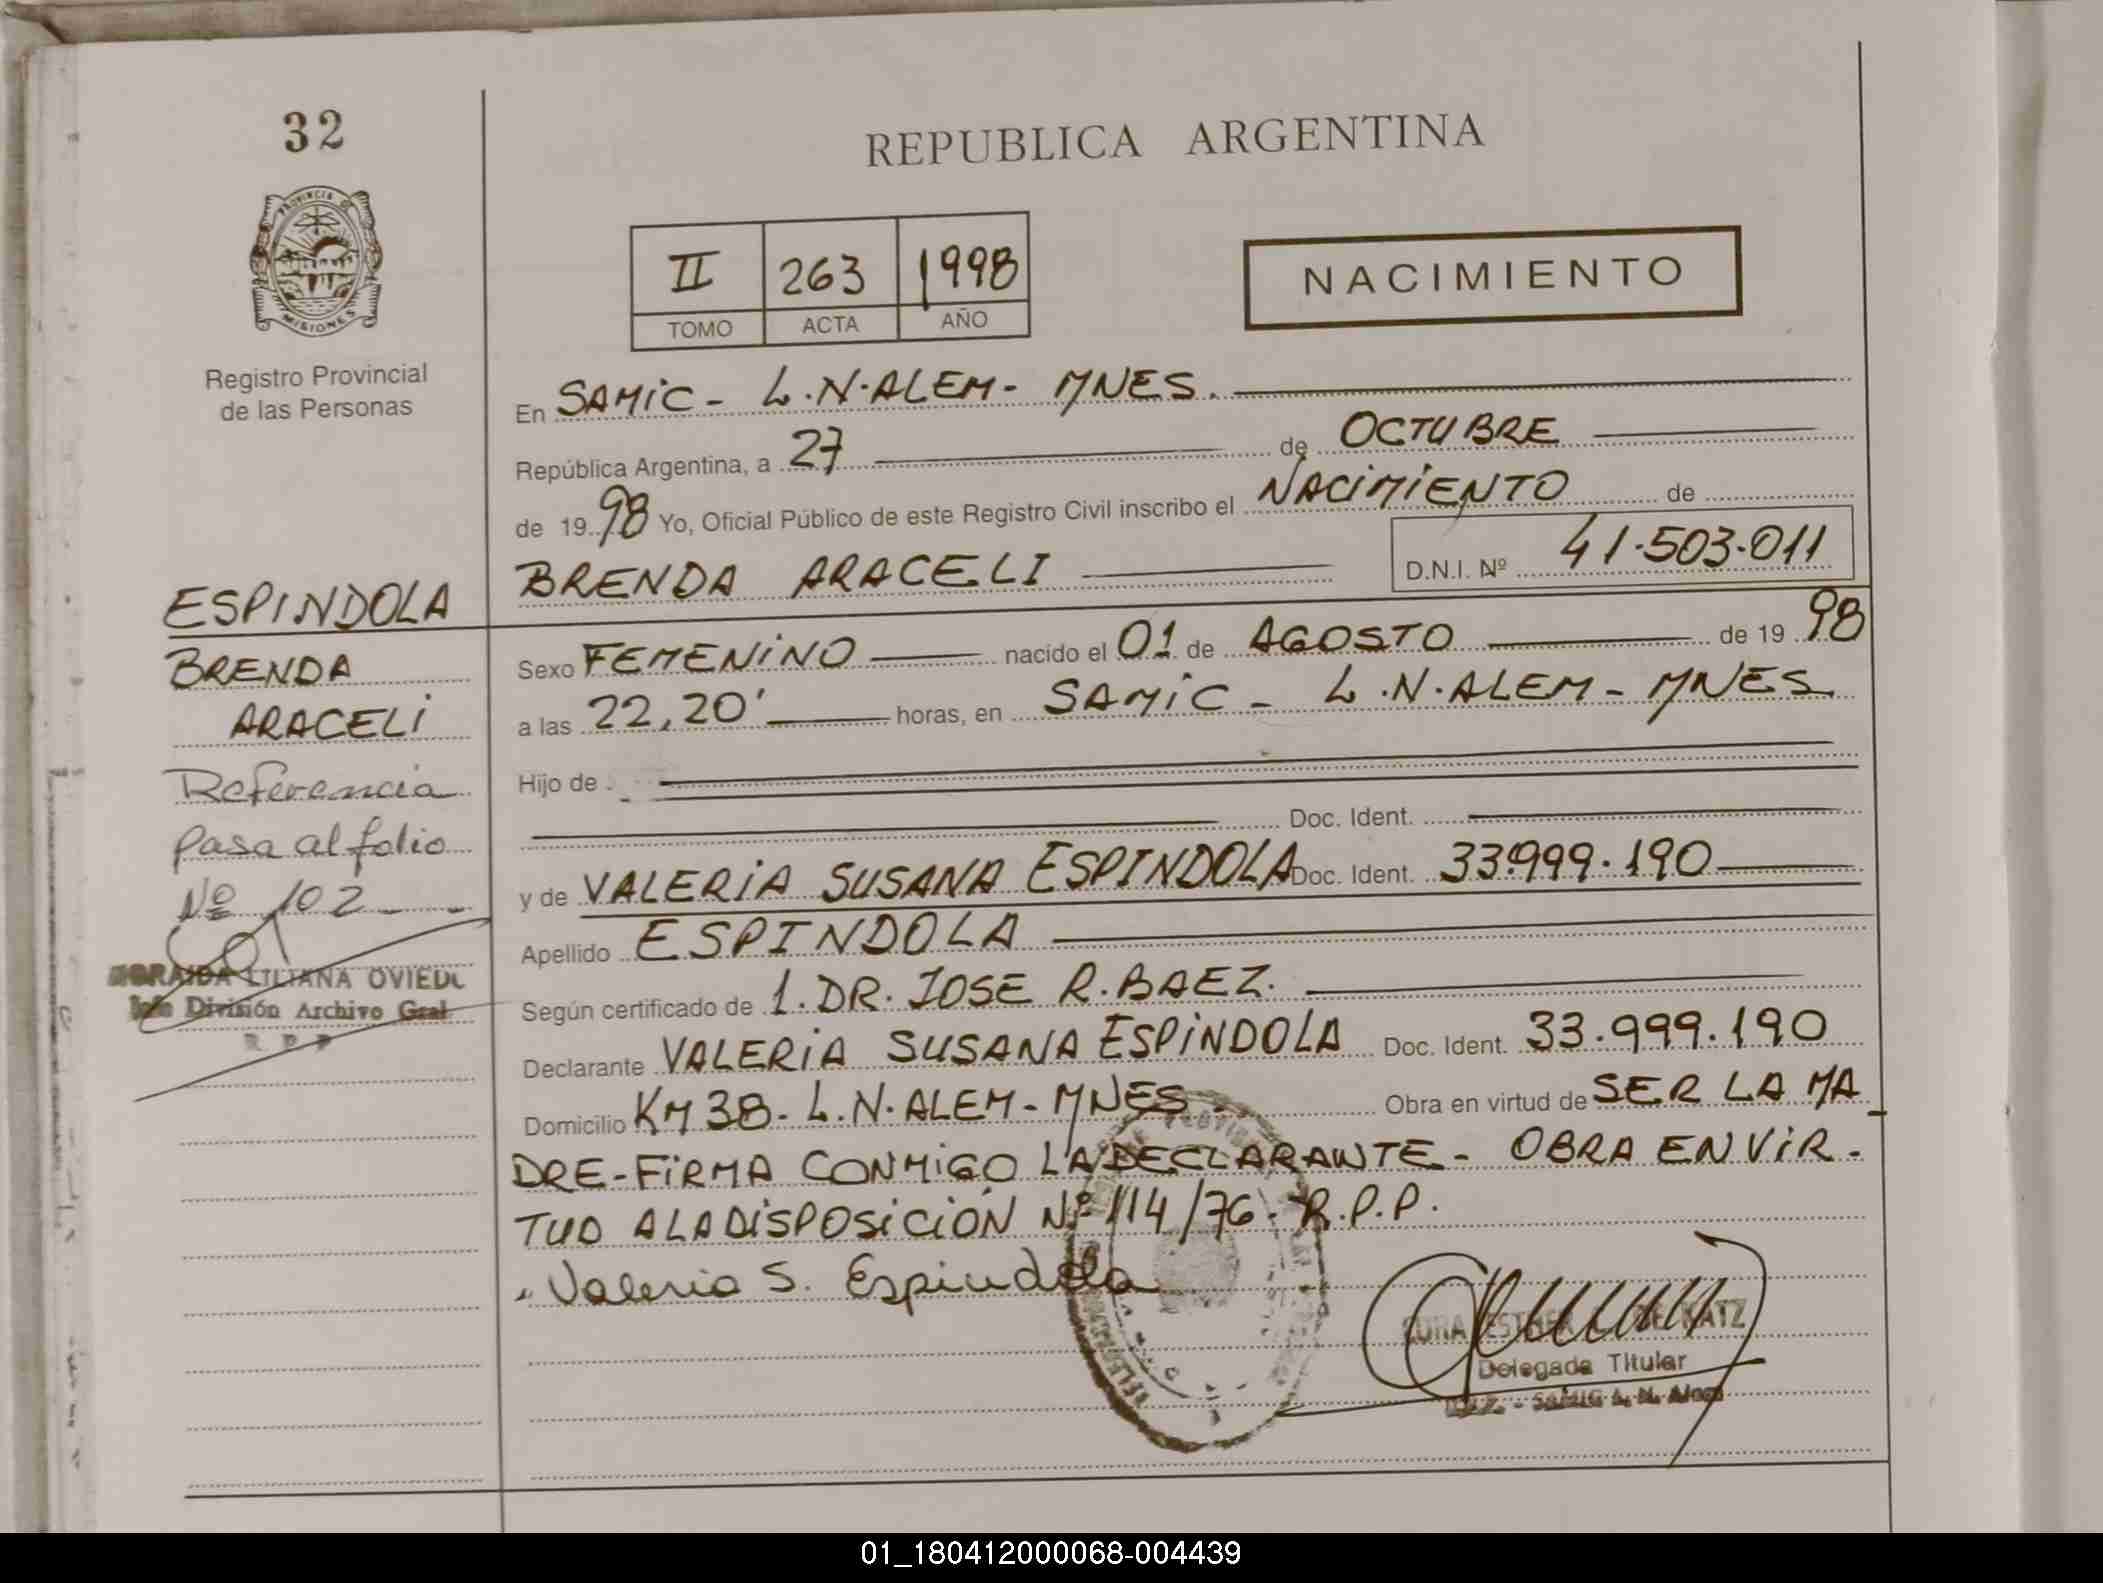 32
REPUBLICA ARGENTINA
PROVINCIA DE
MISIONES
II 263 1998
TOMO ACTA AÑO
NACIMIENTO
Registro Provincial
de las Personas
En SAMIC - L.N.ALEM - MNES.
República Argentina, a 27 de OCTUBRE
de 1998 Yo, Oficial Público de este Registro Civil inscribo el NACIMIENTO de
BRENDA ARACELI D.N.I. Nº 41.503.011
ESPINDOLA
BRENDA
ARACELI
Referencia
pasa al folio
Nº 102
LILIANA OVIEDO
Jefe División Archivo Gral
R P P
Sexo FEMENINO nacido el 01 de AGOSTO de 1998
a las 22,20' horas, en SAMIC - L.N.ALEM - MNES.
Hijo de
Doc. Ident.
y de VALERIA SUSANA ESPINDOLA Doc. Ident. 33.999.190
Apellido ESPINDOLA
Según certificado de 1. DR. JOSE R. BAEZ.
Declarante VALERIA SUSANA ESPINDOLA Doc. Ident. 33.999.190
Domicilio KM 38 - L.N.ALEM - MNES. Obra en virtud de SER LA MA
DRE - FIRMA CONMIGO LA DECLARANTE - OBRA EN VIR-
TUD A LA DISPOSICIÓN Nº 114/76. R.P.P.
Valeria S. Espindola
ESTHER DE KATZ
Delegada Titular
SAMIC L. N. Alem
01_180412000068-004439